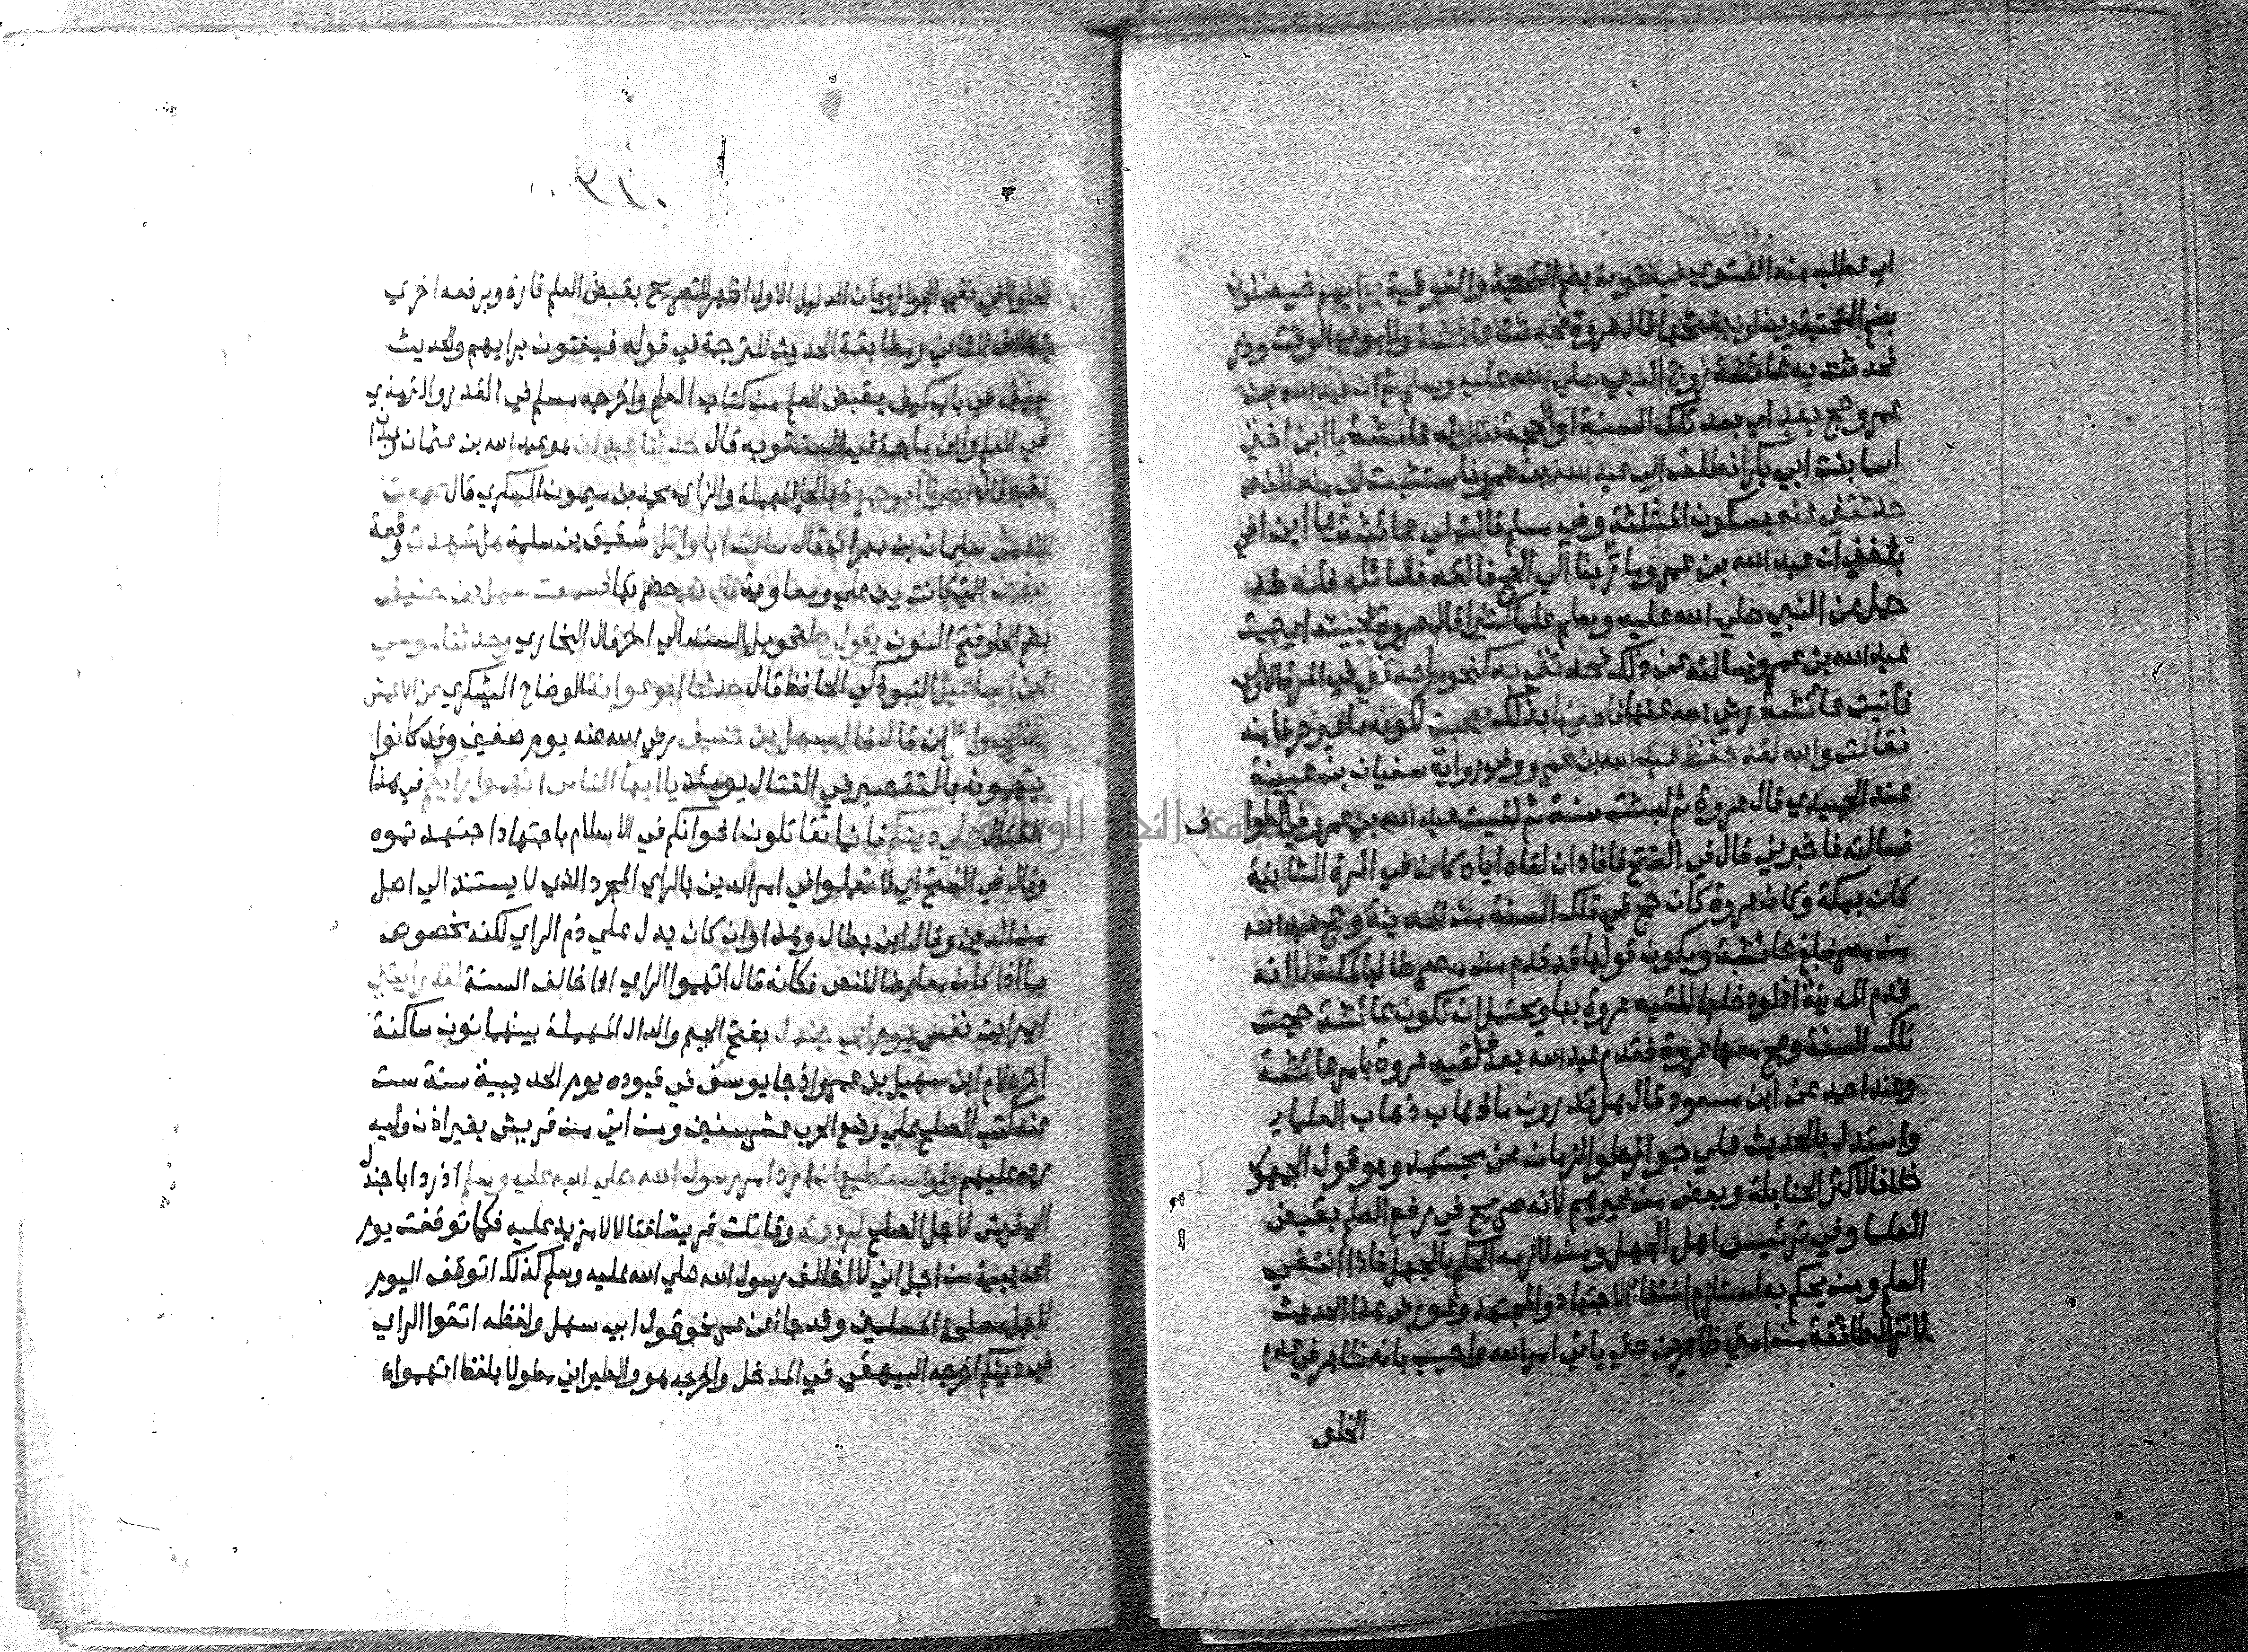 اي تطلب منه الفتوي فيفتون بضم التحتية والفوقية برايهم فيضلون
بضم التحتية ويضلون بفتحها قال عروة فحدثت عائشة ولابوي الوقت وذر
فحدثت به عائشة زوج النبي صلي الله عليه وسلم ثم ان عبد الله بن
عمرو حج بعد اي بعد تلك السنة او الحجة فقالت له عائشة يا ابن اختي
اسما بنت ابي بكر انطلق الي عبد الله بن عمرو فاستثبت لي منه الذي
حدثتني عنه بسكون المثلثة وفي مسلم قالت لي عائشة يا ابن اختي
بلغني ان عبد الله بن عمرو مار بنا الي الحج فالقه فسائله فانه قد
حمل عن النبي صلي الله عليه وسلم علما كثيرا قال عروة فجيته اي جيت
عبد الله بن عمرو فسالته عن ذلك فحدثني به كنحو ما حدثني في المرة الاولي
فاتيت عائشة رضي الله عنها فاخبرتها بذلك فعجبت لكونه ما غير حرفا منه
فقالت والله لقد حفظ عبد الله بن عمرو وفي رواية سفيان بن عيينة
عند الحميدي قال عروة ثم لبثت سنة ثم لقيت عبد الله بن عمرو في الطواف
فسالته فاخبرني قال في الفتح فافاد ان لقاه اياه كان في المرة الثانية
كان بمكة وكان عروة كان حج في تلك السنة من المدينة وحج عبد الله
من مصر فبلغ عائشة ويكون قولها قد قدم من مصر طالبا لمكة لا انه
قدم المدينة اذ لو دخلها للقيه عروة بها ويحتمل ان تكون عائشة حجت
تلك السنة وحج معها عروة فقدم عبد الله بعد فلقيه عروة بامر عائشة
وعند احمد عن ابن مسعود قال هل تدرون ما ذهاب ذهاب العلما
واستدل بالحديث علي جواز خلو الزمان عن مجتهد وهو قول الجمهور
خلافا لاكثر الحنابلة وبعض من غيرهم لانه صريح في رفع العلم بقبض
العلما وفي ترئيس اهل الجهل ومن لازمه الحكم بالجهل فاذا انتفي
العلم ومن يحكم به استلزم انتفاء الاجتهاد والمجتهد وعورض هذا بحديث
لا تزال طائفة من امتي ظاهرين حتي ياتي امر الله واجيب بانه ظاهر في عدم
الخلو
الخلو لا في نفي الجواز وبان الدليل الاول اظهر للتصريح بقبض العلم تارة وبرفعه اخري
بخلاف الثاني ومطابقة الحديث للترجمة في قوله فيفتون برايهم والحديث
سبق في باب كيف يقبض العلم من كتاب العلم واخرجه مسلم في القدر والترمذي
في العلم وابن ماجة في السنة وبه قال حدثنا عبدان هو عبد الله بن عثمان وعبدان
لقبه قال اخبرنا ابو حمزة بالحا المهملة والزاي محمد بن ميمون السكري قال سمعت
الاعمش سليمان بن مهران قال سالت ابا وائل شقيق بن سلمة هل شهدت وقعة
صفين التي كانت بين علي ومعاوية قال نعم حضرتها فسمعت سهل بن حنيف
بضم الحا وفتح النون يقول ح لتحويل السند الي اخر قال البخاري وحدثنا موسي
ابن اسماعيل التبوذكي الحافظ قال حدثنا ابو عوانة الوضاح اليشكري عن الاعمش
عن ابي وائل انه قال قال سهل بن حنيف رضي الله عنه يوم صفين وقد كانوا
يتهمونه بالتقصير في القتال يومئذ يا ايها الناس اتهموا رايكم في هذا
القتال علي دينكم فانما تقاتلون اخوانكم في الاسلام باجتهاد اجتهدتموه
وقال في الفتح اي لا تعملوا في امر الدين بالراي المجرد الذي لا يستند الي اصل
من الدين وقال ابن بطال وهذا وان كان يدل علي ذم الراي لكنه مخصوص
بما اذا كان معارضا للنص فكانه قال اتهموا الراي اذا خالف السنة لقد رايتني
اي رايت نفسي يوم ابي جندل بفتح الجيم والدال المهملة بينهما نون ساكنة
اخره لام ابن سهيل بن عمرو اذ جا يوسف في قيوده يوم الحديبية سنة ست
عند كتب الصلح علي وضع الحرب عشر سنين ومن اتي من قريش بغير اذن وليه
رده عليهم ولو استطيع ان ارد امر رسول الله صلي الله عليه وسلم اذ رد ابا جندل
الي قريش لاجل الصلح لرددته وقاتلت قريشا قتالا لا مزيد عليه فكما توقفت يوم
الحديبية من اجل اني لا اخالف رسول الله صلي الله عليه وسلم كذلك اتوقف اليوم
لاجل مصلحة المسلمين وقد جاء عن عمر نحو قول ابي سهل ولفظه اتقوا الراي
في دينكم اخرجه البيهقي في المدخل واخرجه هو والطبراني مطولا بلفظ اتهموا